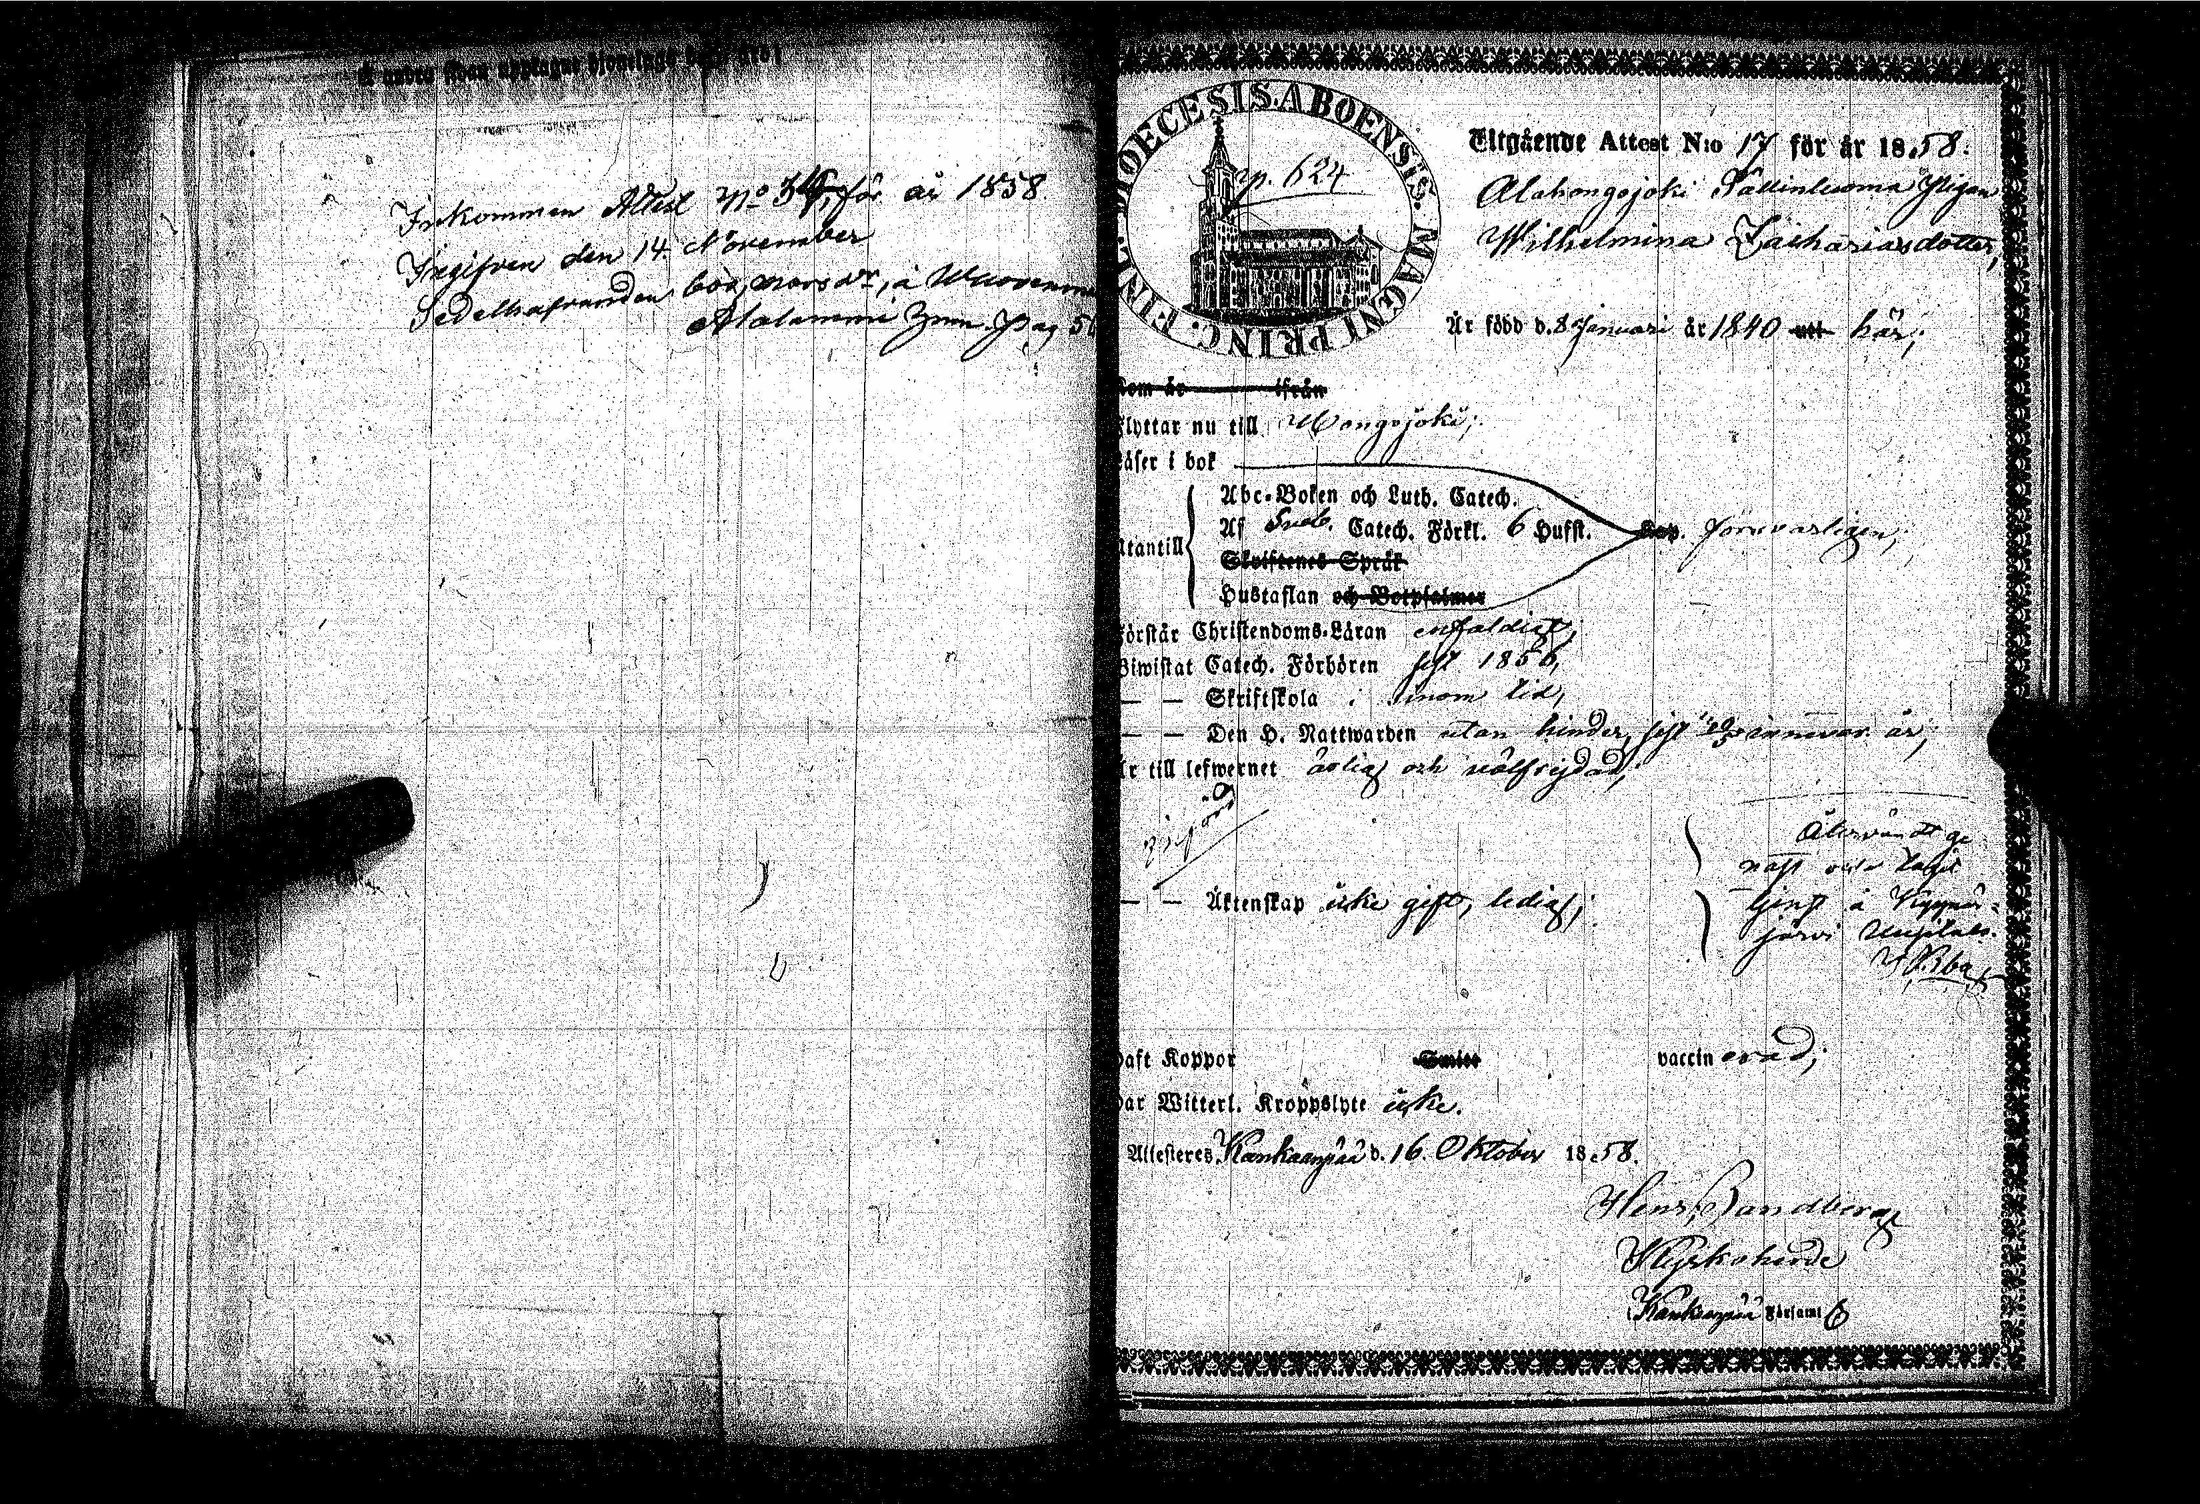 Inkommen Attest No 34, för år 1858.
Ingifven den 14. November
Sedelhafvanden bör, nors dr, å
Alatammi Pag
DIOECESIS ABOENSIS. MAGNI PRINC. FINL.
p. 624
Utgående Attest N:o 17 för år 1858.
Alahongojoki Pigan
Wilhelmina Zachariasdotter,
Är född d. 8 Januari år 1840 här;
kom år ifrån
Flyttar nu till Hongojoki;
Läser i bok
Abc-Boken och Luth. Catech.
Utantill Af Sveb. Catech. Förkl. 6 Hufst. försvarligen;
Skriftenes Språk
Hustaflan och Botpsalmer
Förstår Christendoms-Läran enfaldigt,
Biwistat Catech. Förhören sist 1856,
— — Skriftskola inom tid,
— — Den H. Nattwarden utan hinder, sist innevar. år,
Är till lefwernet ärlig och välfrejdad,
Återvändt ge
nast och tagit
tjenst å
järvi
— — Äktenskap icke gift, ledig;
Haft Koppor Smitt vaccinerad;
Har Witterl. Kroppslyte icke.
Attesteres Kankaanpää d. 16 Oktober 1858.
Henr. Sandberg
Kyrkoherde
i Kankaanpää Församl